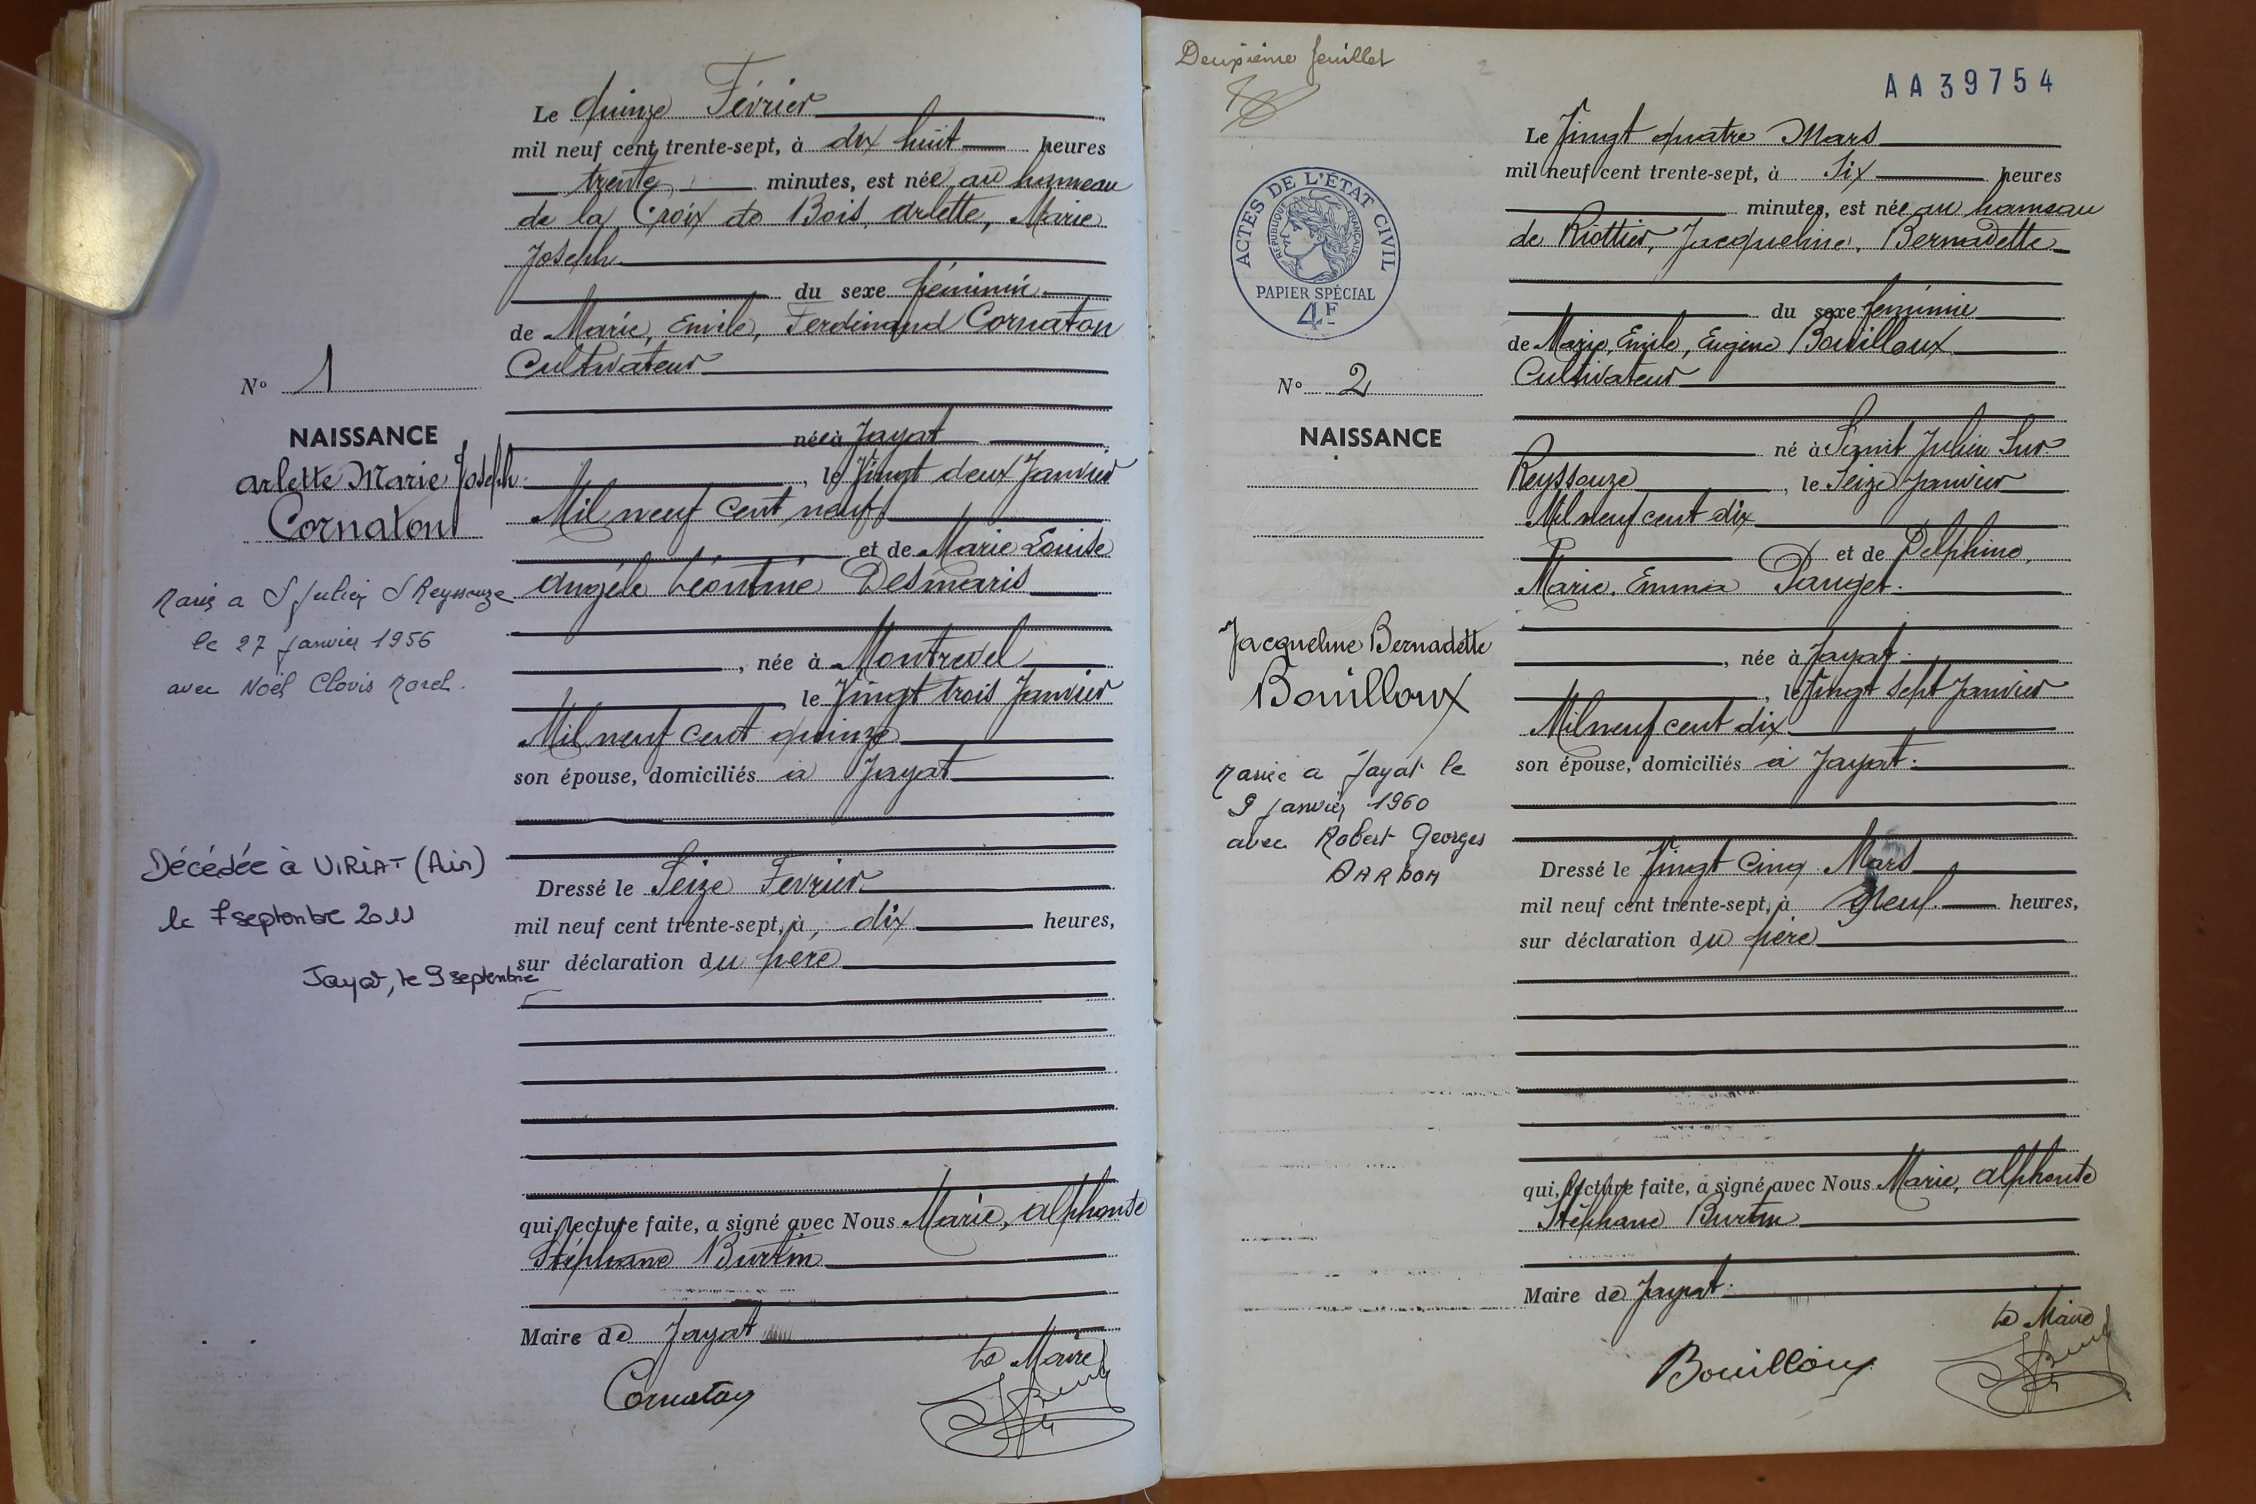 Le quinze Février
mil neuf cent trente-sept, à dix huit heures
trente minutes, est née au hameau
de la Croix de Bois, Arlette, Marie
Joseph
du sexe féminin
de Marie, Emile, Ferdinand Cornaton
Cultivateur
N° 1
NAISSANCE
Arlette Marie Joseph
Cornaton
née à Jayat
, le Vingt deux Janvier
Mil neuf cent neuf
et de Marie Louise
Angéle Léontine Desmaris
Mariée a St Julien S Reyssouze
le 27 Janvier 1956
avec Noël Clovis Morel.
, née à Montrevel
, le Vingt trois Janvier
Mil neuf cent quinze
son épouse, domiciliés à Jayat
Décédée à VIRIAT (Ain)
le 7 septembre 2011
Jayat, le 9 septembre
Dressé le Seize Fevrier
mil neuf cent trente-sept, à dix heures,
sur déclaration du père
qui, lecture faite, a signé avec Nous Marie, Alphonse
Stéphane Burtin
Maire de Jayat
Le Maire
Cornaton
Deuxième feuillet
AA39754
Le Vingt quatre Mars
mil neuf cent trente-sept, à Six heures
minutes, est née au hameau
de Riottier, Jacqueline, Bernadette
ACTES DE L'ÉTAT CIVIL
RÉPUBLIQUE FRANÇAISE
PAPIER SPÉCIAL
4F
du sexe féminin
de Marie, Emile, Eugène Bouilloux
Cultivateur
N° 2
NAISSANCE
Jacqueline Bernadette
Bouilloux
né à Saint Julien Sur
Reyssouze, le Seize Janvier
Mil neuf cent dix
et de Delphine,
Marie, Emma Pauget.
, née à Jayat.
, le Vingt sept Janvier
Mil neuf cent dix
son épouse, domiciliés à Jayat.
Mariée a Jayat le
9 Janvier 1960
avec Robert Georges
Dressé le Vingt cinq Mars
mil neuf cent trente-sept, à Neuf heures,
sur déclaration du père
qui, lecture faite, a signé avec Nous Marie, Alphonse
Stéphane Burtin
Maire de Jayat.
Le Maire
Bouilloux